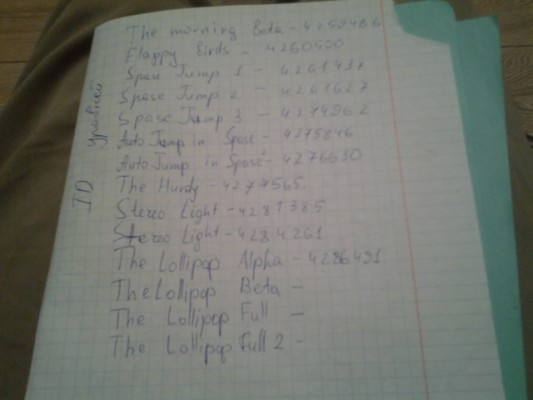 The morning Beta - 4259486
Flappy Birds - 4260500
Spase Jump 1 - 4261437
Spase Jump 2 - 4261627
Spase Jump 3 - 4274962
Auto Jump in Spase - 4275846
Auto Jump in Spase - 4276630
The Hurdy - 4277565.
Stereo Light - 4281385
Stereo Light - 4284261
The Lollipop Alpha - 4286491
The Lollipop Beta -
The Lollipop Full -
The Lollipop Full 2 -
ID уровней